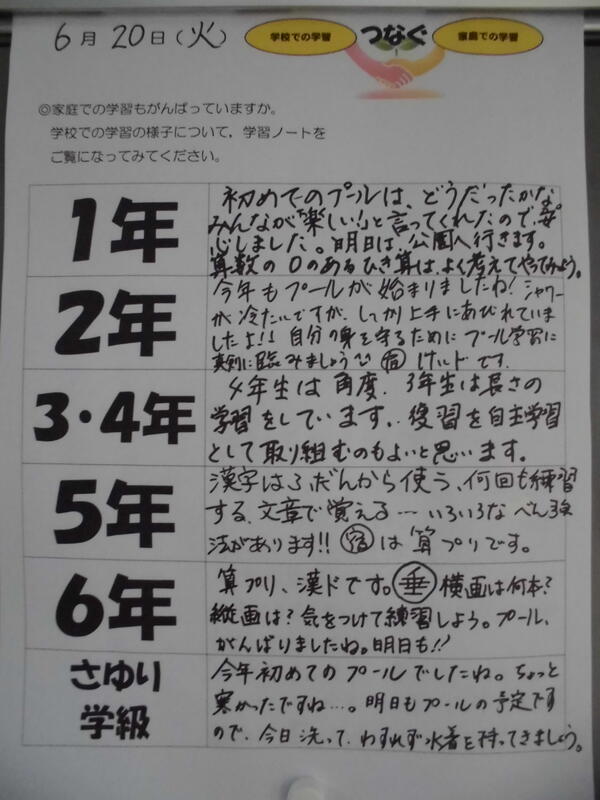 6月20日(火)
学校での学習
つなぐ
家庭での学習
◎家庭での学習もがんばっていますか。
学校での学習の様子について，学習ノートを
ご覧になってみてください。
1年
初めてのプールは、どうだったかな
みんなが「楽しい!」と言ってくれたので、安
心しました。明日は、公園へ行きます。
算数の0のあるひき算は、よく考えてやってみよう。
2年
今年もプールが始まりましたね! シャワー
が冷たいですが、しっかり上手にあびれていま
したよ!! 自分の身を守るために プール学習に
真剣に臨みましょう 宿 けいドです。
3・4年
4年生は角度、3年生は長さの
学習をしています。復習を自主学習
として取り組むのもよいと思います。
5年
漢字はふだんから使う、何回も練習
する、文章で覚える…いろいろなべん強
法があります!! 宿は算プリです。
6年
算プリ、漢ドです。垂 横画は何本?
縦画は? 気をつけて練習しよう。プール、
がんばりましたね。明日も!!
さゆり
学級
今年初めてのプールでしたね。ちょっと
寒かったですね…。明日もプールの予定です
ので、今日洗って、わすれず水着を持ってきましょう。